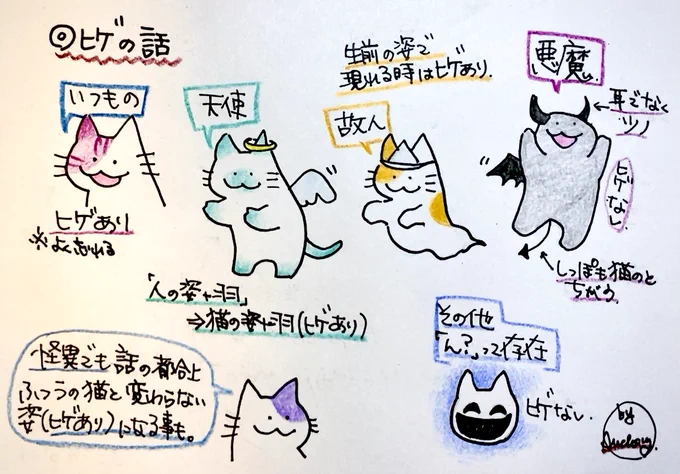 ◎ヒゲの話
いつもの
ヒゲあり
※よく忘れる
天使
「人の姿+羽」
⇒猫の姿+羽(ヒゲあり)
生前の姿で
現れる時はヒゲあり.
故人
悪魔
←耳でなく
ツノ
ヒゲなし.
しっぽも猫のと
ちがう
怪異でも話の都合上
ふつうの猫と変わらない
姿(ヒゲあり)になる事も。
その他
「ん?」って存在
ヒゲなし.
by